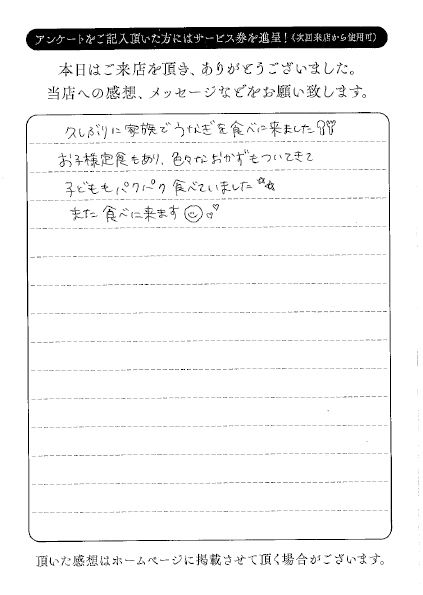 アンケートをご記入頂いた方にはサービス券を進呈！（次回来店から使用可）
本日はご来店を頂き、ありがとうございました。
当店への感想、メッセージなどをお願い致します。
久しぶりに家族でうなぎを食べに来ました!!♡
お子様定食もあり、色々なおかずもついてきて
子どももパクパク食べていました☆☆
また食べに来ます☺♡
頂いた感想はホームページに掲載させて頂く場合がございます。